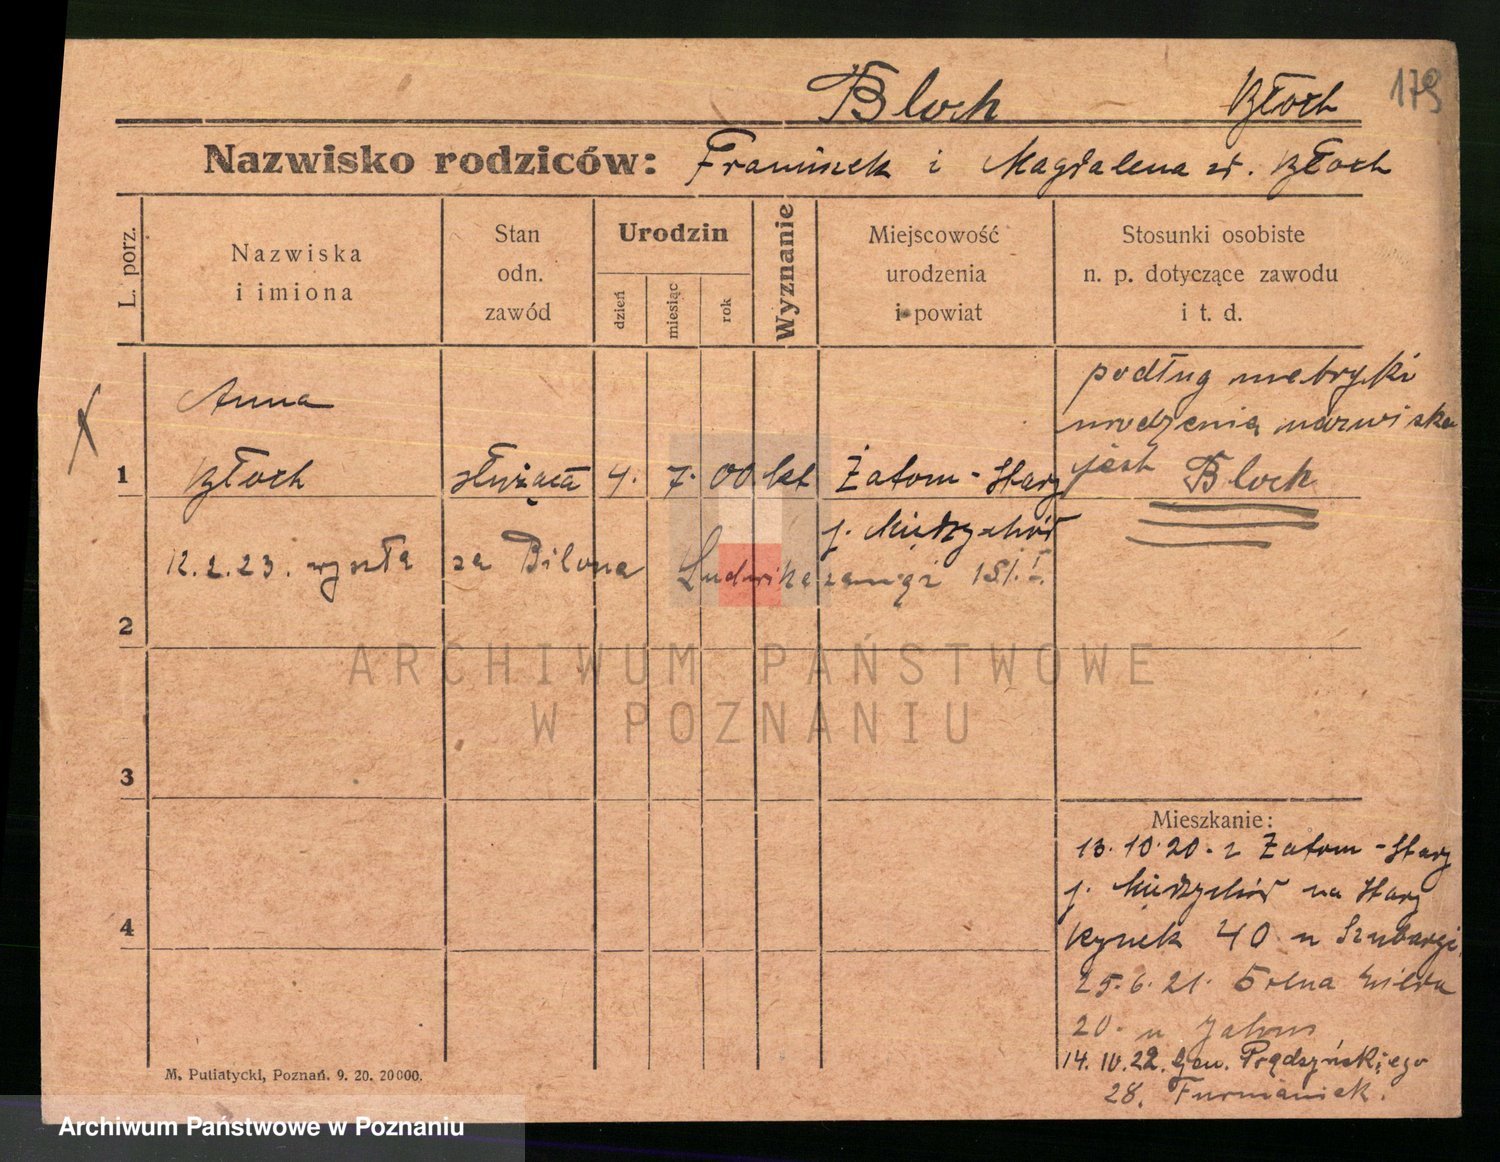 Bloch Kłoch 179
Nazwisko rodziców: Franciszek i Magdalena zd. Kłoch
L. porz.
Nazwiska i imiona
Stan odn. zawód
Urodzin
dzień
miesiąc
rok
Wyznanie
Miejscowość urodzenia i powiat
Stosunki osobiste n. p. dotyczące zawodu i t. d.
Anna
1 Kłoch służąca 4. 7. 00 kt Zatom-Stary
p. Międzychód
podług metryki
urodzenia nazwiska
jest Bloch
12.2.23. wyszła za Bilona Ludwika
2
ARCHIWUM PAŃSTWOWE
W POZNANIU
3
4
Mieszkanie:
13.10.20. z Zatom-Stary
p. Międzychód na Stary
Rynek 40 u
25.6.21. Wilda
20. u
14.10.22. Gen. Prądzyńskiego
28. Furmaniak.
M. Putiatycki, Poznań. 9. 20. 20000.
Archiwum Państwowe w Poznaniu